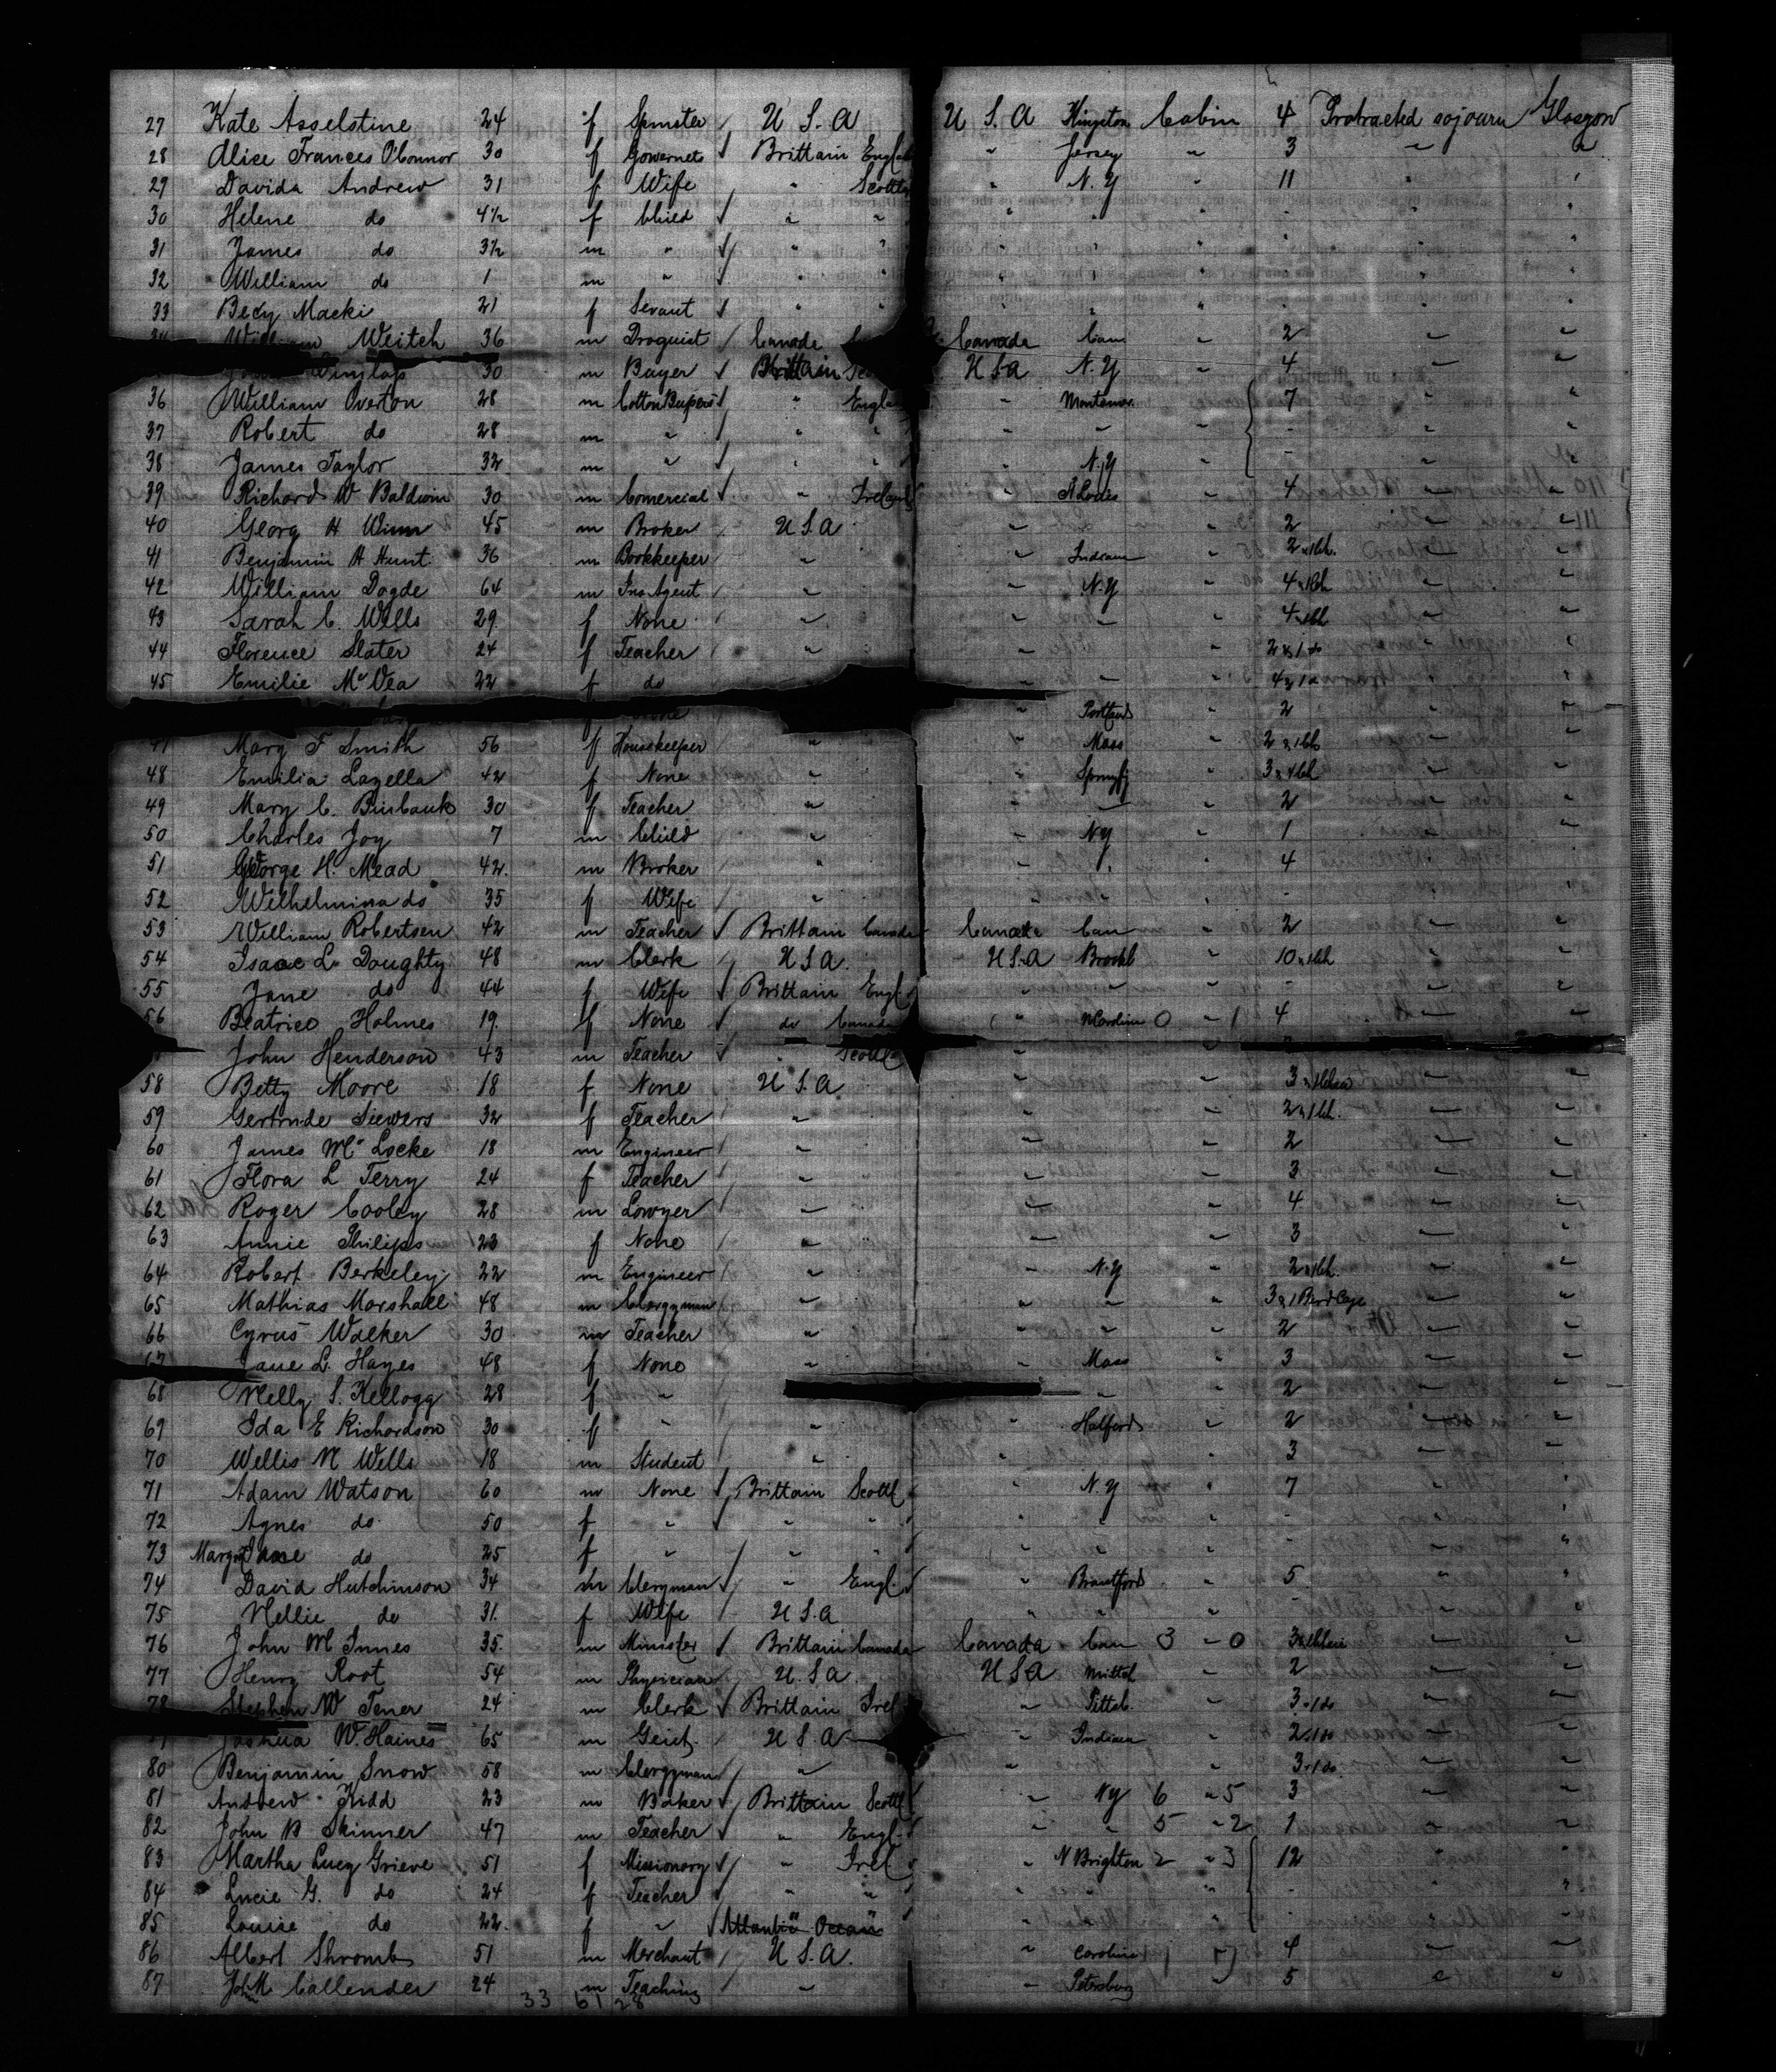 27 Kate Asselstine 24 f Spinster / U S. A U S. A Kingston Cabin 4 Protracted sojourn Glasgow
28 Alice Frances O'Connor 30 f Governess √ Brittain Engl " Jersey " 3 " "
29 Davida Andrew 31 f Wife / " Scottl " N. Y " 11 " "
30 Helene do 4½ f Child √ " " " " " " " "
31 James do 3½ m " √ " " " " " " " "
32 William do 1 m " √ " " " " " "
33 Becy Macki 21 f Sevant √ " " " " " "
William Weitch 36 m Droguist / Canada Canada Can " 2 " "
30 m Buyer √ Brittain U S A N. Y " 4 " "
36 William Overton 28 m Cotton Buyers √ " Engla " " 7 " "
37 Robert do 28 m " / " " " " " - " "
38 James Taylor 32 m " √ " " " N. Y " - " "
39 Richard W Baldwin 30 m Comercial √ " Ireland " St Louis " 4 " "
40 Georg H Winn 45 m Broker / U S A " " 2 " "
41 Benjamin H Hunt. 36 m Bookkeeper / " " Indiana " 2 & 1 Ch. " "
42 William Dogde 64 m Ins. Agent / " " N. Y " 4 & 1 Ch " "
43 Sarah C. Wells 29. f None / " " " " 4 & 1 Ch " "
44 Florence Slater 24 f Teacher / " " " 2 & 1 do " "
45 Emilie McVea 22 f do " " 4 & 1 " " "
" Portland " 2 " "
Mary F Smith 56 f Housekeeper " " Mass " 2 & 1 Ch " "
48 Emilia Lazella 42 f None / " " Springfj " 3 & 1 Ch " "
49 Mary C. Burbank 30 f Teacher / " " " " 2 " "
50 Charles Joy 7 m Child / " " N Y " 1 " "
51 George H. Mead 42. m Broker / " " " " 4 " "
52 Wilhelmina do 35 f Wife / " " " " - " "
53 William Robertson 42 m Teacher √ Brittain Canada Canada Can " 2 " "
54 Isaac L Doughty 48 m Clerk / U S A. U S. A Brookl " 10 & 1 Ch " "
55 Jane do 44 f Wife √ Brittain Engl. " " " - " "
56 Beatrice Holmes 19. f None √ do Canada " N Carolina 0 - 1 4 " "
John Henderson 43 m Teacher √ " Scottl "
58 Betty Moore 18 f None U S. A " " 3 " "
59 Gertrude Siewers 32 f Teacher / " " " 2 & 1 Ch. " "
60 James Mc Locke 18 m Engineer / " " " 2 " "
61 Flora L Terry 24 f Teacher / " " " 3 " "
62 Roger Cooley 28 m Lowyer / " " " 4 " "
63 Annie Philips 23 f None / " " " 3 " "
64 Robert Berkeley 22 m Engineer / " N. Y " 2 & 1 Ch. " "
65 Mathias Marshall 48 m Clergyman / " " " " 3 & 1 Bird Cage " "
66 Cyrus Walker 30 m Teacher / " " " " 2 " "
67 Jane L. Hayes 48 f None " " Mass " 3 " "
68 Nelly S. Kellogg 28 f " " " 2 " "
69 Ida E Richardson 30 f " " " Halford " 2 " "
70 Wellis N Wells 18 m Student / " " " 3 " "
71 Adam Watson 60 m None √ Brittain Scottl " N. Y " 7 " "
72 Agnes do 50 f " √ " " " " " - " "
73 Margret Jane do 25 f " / " " " " " - " "
74 David Hutchinson 34 m Clergman √ " Engl. " Brantford " 5 " "
75 Nellie do 31. f Wife / U S. A " " " - " "
76 John M Innes 35. m Minister √ Brittain Canada Canada Can 3 - 0 3 " "
77 Henry Root 54 m Physician / U. S A U S A " 2 " "
78 Stephen W Tener 24 m Clerk √ Brittain Irel " Pittsb. " 3 & 1 do " "
Joshua W. Haines 65 m Geist. U S. A " Indiana " 2 & 1 do " "
80 Benjamin Snow 58 m Clergyman / " " " 3 & 1 do " "
81 Andrew Kidd 23 m Baker √ Brittain Scottl " N y 6 " 5 3 " "
82 John B Skinner 47 m Teacher √ " Engl. " " 5 " 2 1 " "
83 Martha Lucy Grieve 51 f Missionary √ " Irel " N Brighton 2 " 3 12 " "
84 Lucie G. do 24 f Teacher √ " " " " " - " "
85 Louise do 22. f " √ Atlantic Ocean " " - " "
86 Albert Shromb 51 m Merchant / U S. A. " Carolina 4 " "
87 John M Callender 24 m Teaching / " " Petersburg 5 " "
33 61 28